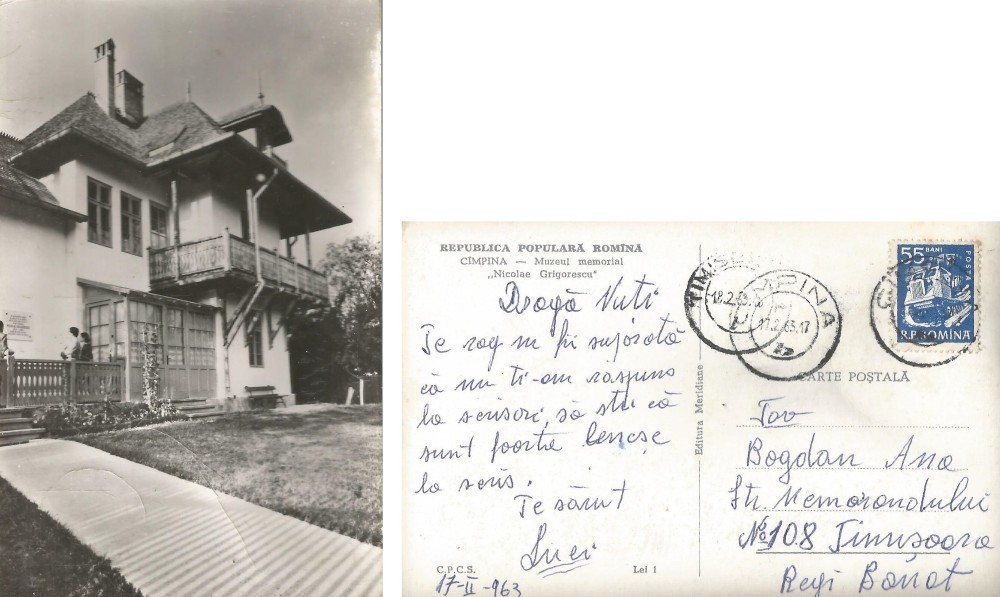 REPUBLICA POPULARĂ ROMÎNĂ
CÎMPINA — Muzeul memorial
„Nicolae Grigorescu"
Dragă Nuti
Te rog nu fi supărată
că nu ți-am răspuns
la scrisori, să știi că
sunt foarte leneșe
la scris.
Te sărut
Luci
C.P.C.S. Lei 1
17-II-963
Editura Meridiane
18.2.63
CÎMPINA
17.2.63.17
55 BANI
POSTA
R.P. ROMINA
CARTE POȘTALĂ
Tov
Bogdan Ana
Str. Memorandului
№ 108 Timișoara
Reg Banat